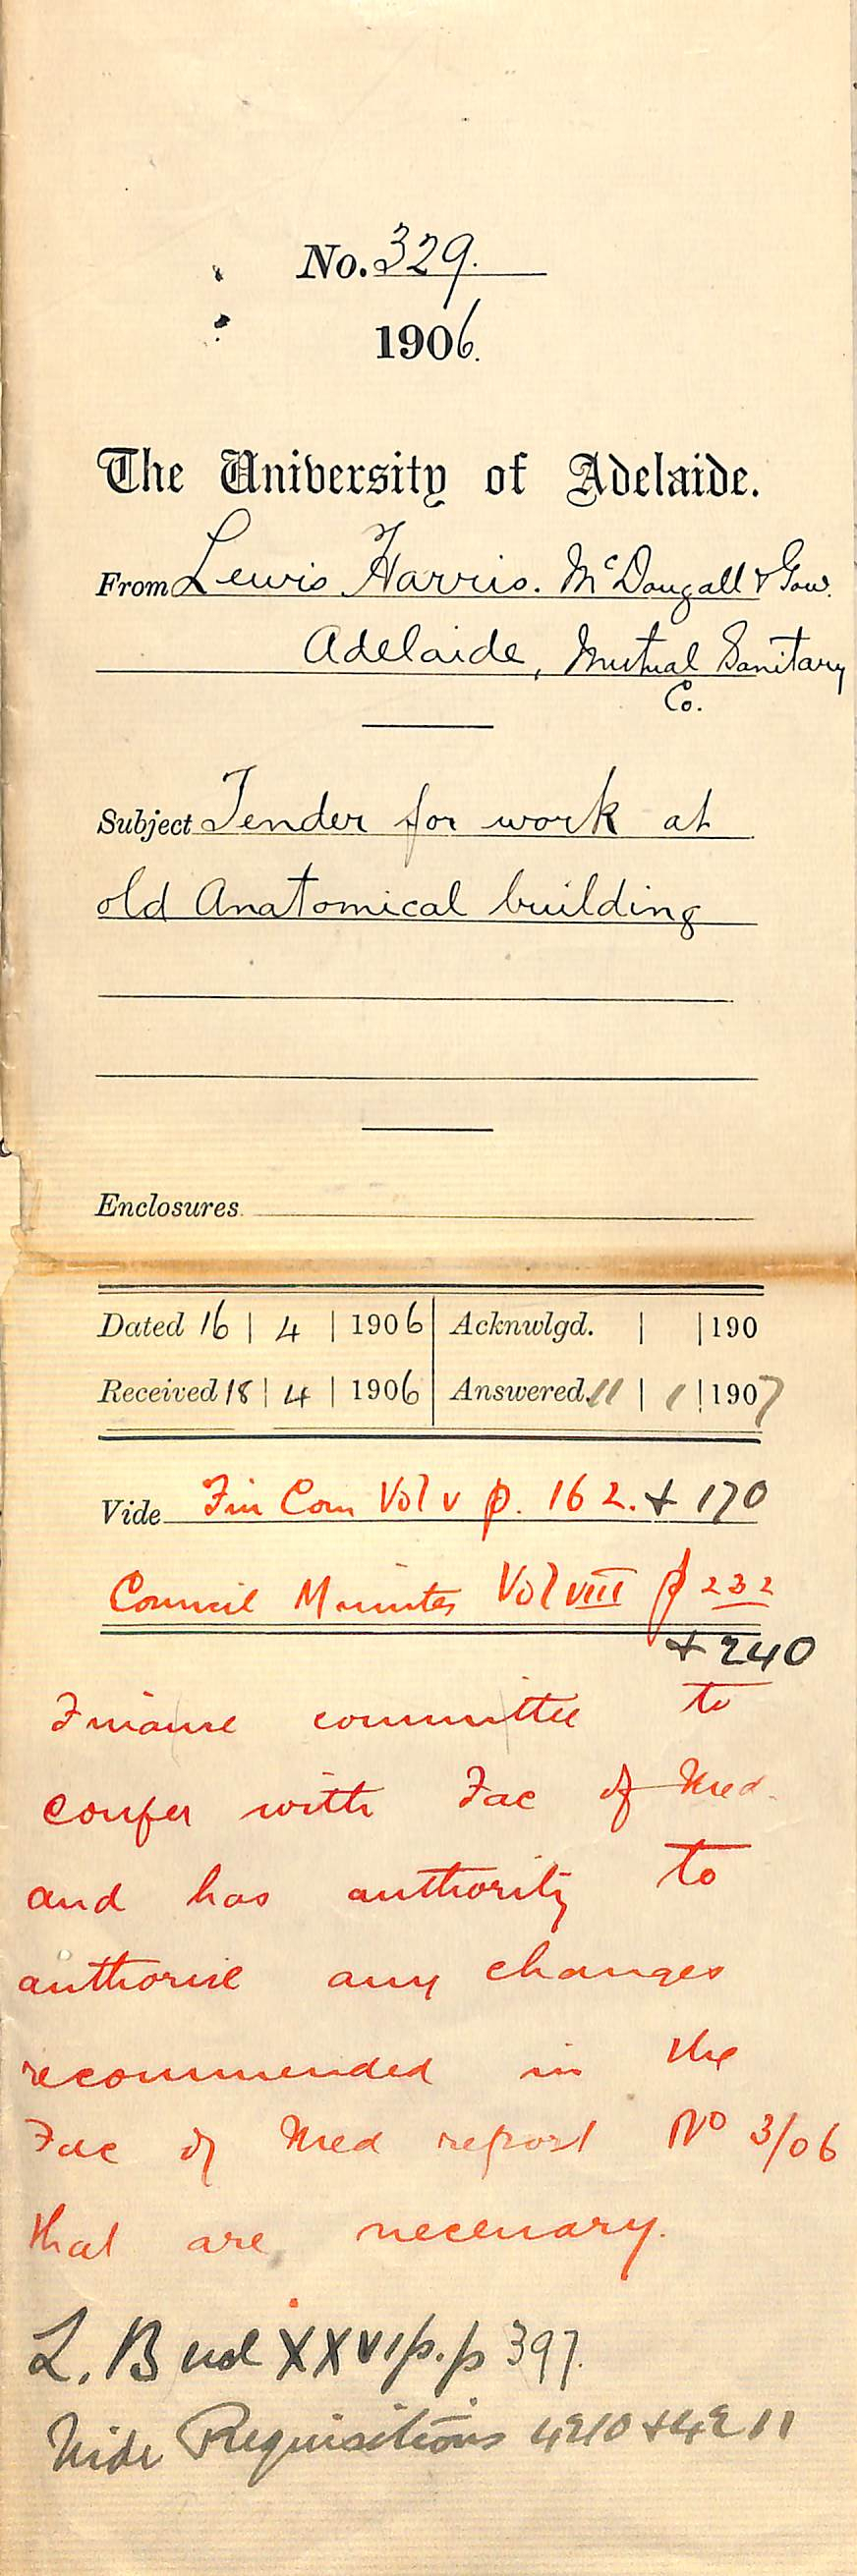 No. 329.
1906.
The University of Adelaide.
From Lewis Harris. McDougall & Gow.
Adelaide, Mutual Sanitary
Co.
Subject Tender for work at
old Anatomical building
Enclosures
Dated 16 | 4 | 1906 Acknwlgd. | | 190
Received 18 | 4 | 1906 Answered 11 | 1 | 1907
Vide Fin Com Vol v p. 162. + 170
Council Minutes Vol VIII p 232
+ 240
Finance committee to
confer with Fac of Med.
and has authority to
authorise any changes
recommended in the
Fac of Med report No 3/06
that are necessary.
L. B vol XXVI p. p 397.
Vide Requisitions 4210 + 4211